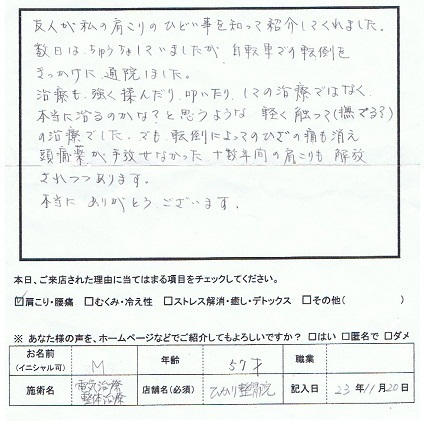 友人が私の肩こりのひどい事を知って紹介してくれました。
数日は、ちゅうちょしていましたが、自転車での転倒を
きっかけに通院しました。
治療も、強く揉んだり、叩いたり、しての治療ではなく、
本当に治るのかな?と思うような 軽く触って(撫でる?)
の治療でした。でも、転倒によってのひざの痛も消え
頭痛薬が手放せなかった十数年間の肩こりも解放
されつつあります。
本当に ありがとう ございます。
本日、ご来店された理由に当てはまる項目をチェックしてください。
☑肩こり・腰痛 □むくみ・冷え性 □ストレス解消・癒し・デトックス □その他( )
※ あなた様の声を、ホームページなどでご紹介してもよろしいですか? □はい □匿名で □ダメ
お名前 (イニシャル可) M 年齢 57才 職業
施術名 電気治療 整体治療 店舗名(必須) ひかり整骨院 記入日 23年11月20日